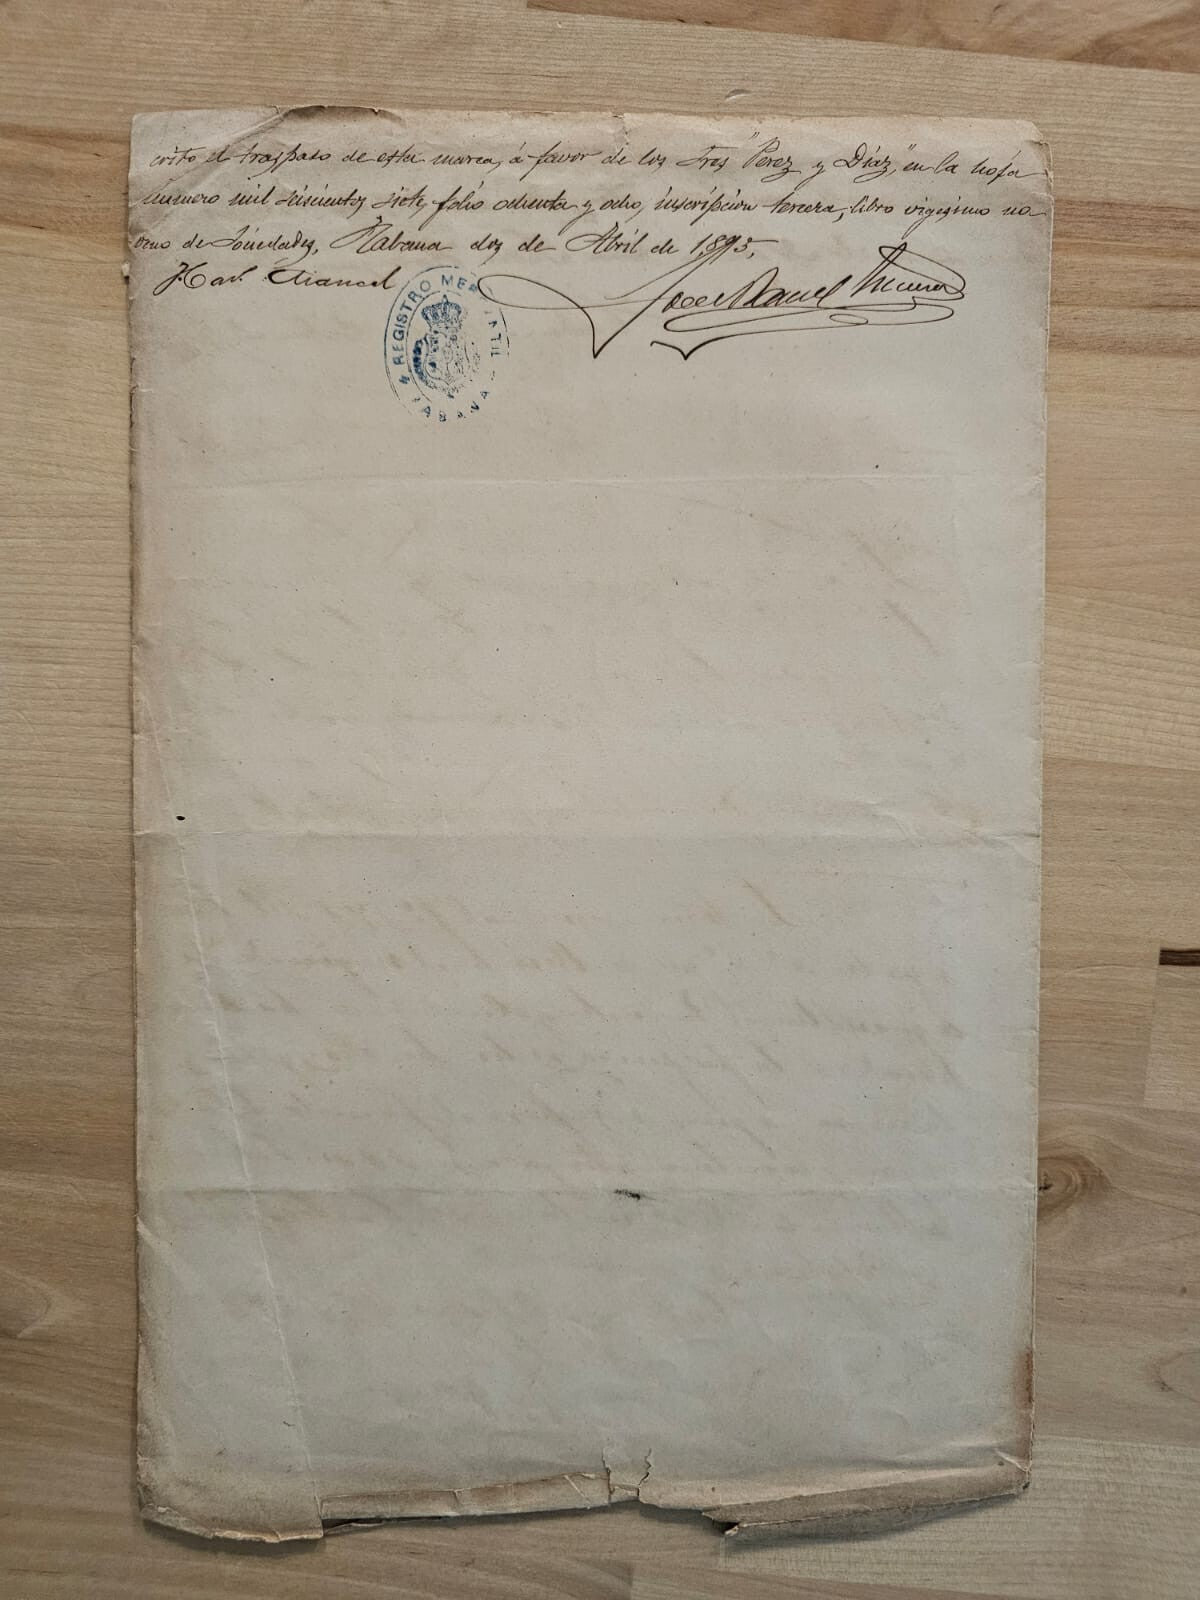 crito el traspaso de esta marca, á favor de los Sres "Perez y Diaz," en la hoja
número mil seiscientos siete, folio ochenta y ocho, inscripcion tercera, libro vigesimo no-
veno de Sociedades, Habana dos de Abril de 1,895,
REGISTRO MERCANTIL
HABANA